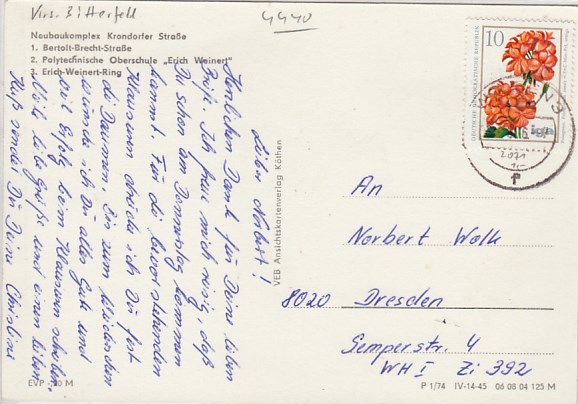 Virs. Bitterfeld
4440
Neubaukomplex Krondorfer Straße
1. Bertolt-Brecht-Straße
2. Polytechnische Oberschule „Erich Weinert"
3. Erich-Weinert-Ring
Lieber Norbert!
Herzlichen Dank für Deine lieben
Briefe. Ich freue mich riesig, daß
Du schon am Donnerstag kommen
kannst. Für die bevorstehenden
Klausuren drücke ich Dir fest
die Daumen. Bis zum Wiedersehen
wünsche ich Dir alles Gute und
viel Erfolg beim Klausuren schreiben.
Viele liebe Grüße und einen lieben
Kuß sendet Dir Deine Christine
VEB Ansichtskartenverlag Köthen
10
DEUTSCHE DEMOKRATISCHE REPUBLIK
iga
2071
An
Norbert Walk
8020 Dresden
Semperstr. 4
WH I Zi 392
EVP -,20 M
P 1/74 IV-14-45 06 08 04 125 M